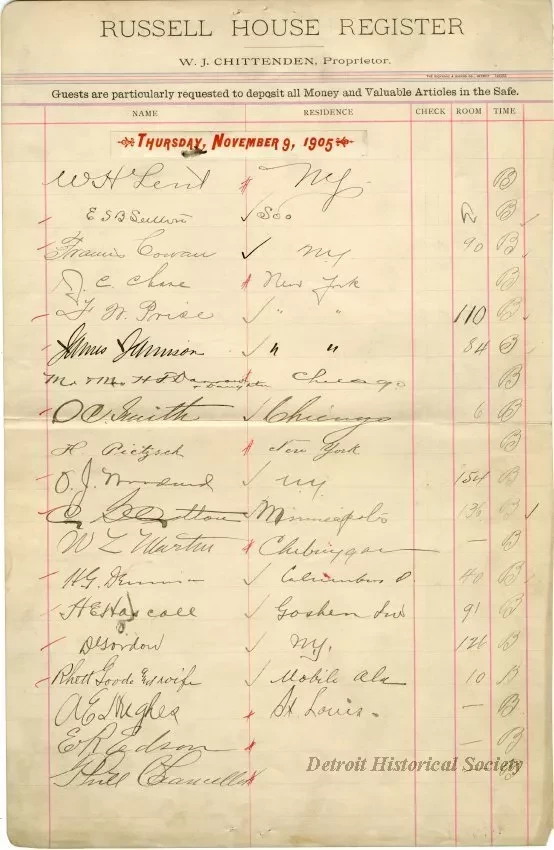 RUSSELL HOUSE REGISTER
W. J. CHITTENDEN, Proprietor.
Guests are particularly requested to deposit all Money and Valuable Articles in the Safe.
NAME RESIDENCE CHECK ROOM TIME
THURSDAY, NOVEMBER 9, 1905
W H N.Y. B
E S B Sutton Soo B
Francis Cowan N.Y. 90 B
J. C. Chase New York B
F W Price " " 110 B
James Jamison " " 84 B
Mr & Mrs H F & Daughter Chicago B
O C Smith Chicago 6 B
H Pietzsch New York B
O. J. Woodward N.Y. 154 B
C Minneapolis 136 B
W L Martin Cheboygan — B
H G. Columbus O. 40 B
H E Hascall Goshen Ind 91 B
D Gordon N.Y. 126 B
Rhett Goode and wife Mobile Ala 10 B
A E Hughes St Louis — B
E R Edson — B
Phill Chancellor B
Detroit Historical Society